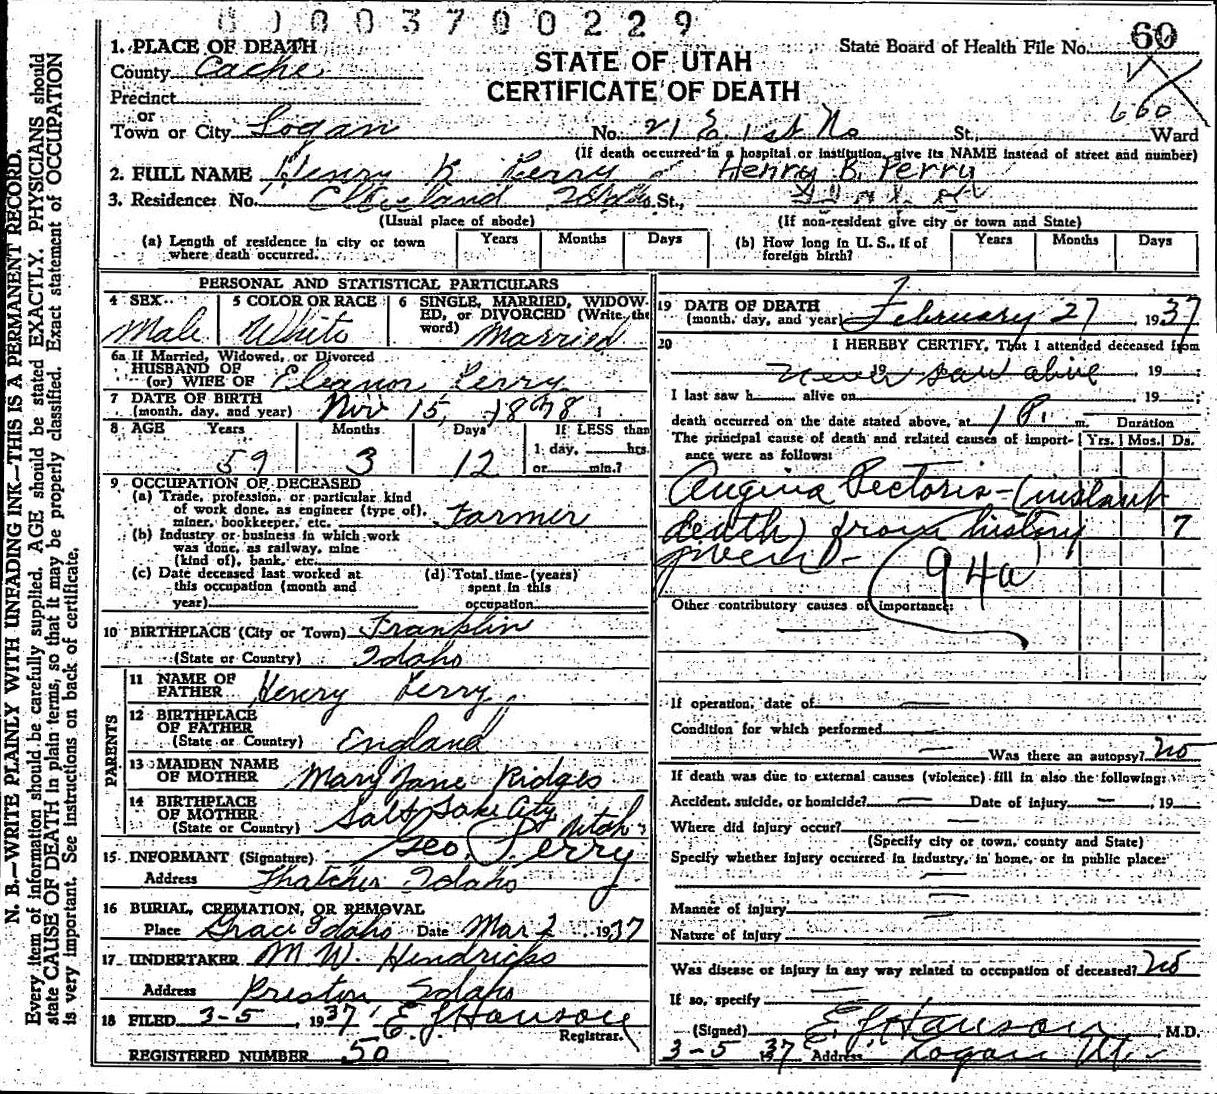 00003700229
State Board of Health File No. 60
1. PLACE OF DEATH
STATE OF UTAH
County Cache
CERTIFICATE OF DEATH
Precinct
or
660
Town or City Logan No. 21 E. 1st No St., Ward
(If death occurred in a hospital or institution, give its NAME instead of street and number)
2. FULL NAME Henry B. Perry
3. Residence: No. Cleveland Idaho St.,
(Usual place of abode) (If non-resident give city or town and State)
(a) Length of residence in city or town where death occurred. Years Months Days
(b) How long in U. S., if of foreign birth? Years Months Days
PERSONAL AND STATISTICAL PARTICULARS
4 SEX Male
5 COLOR OR RACE White
6 SINGLE, MARRIED, WIDOWED, or DIVORCED (Write the word) Married
6a If Married, Widowed, or Divorced
HUSBAND OF
(or) WIFE OF Eleanor Perry
7 DATE OF BIRTH
(month, day, and year) Nov 15, 1878
8 AGE Years Months Days If LESS than
1 day, hrs.
59 3 12 or min.?
9 OCCUPATION OF DECEASED
(a) Trade, profession, or particular kind
of work done, as engineer (type of),
miner, bookkeeper, etc. Farmer
(b) Industry or business in which work
was done, as railway, mine
(kind of), bank, etc.
(c) Date deceased last worked at
this occupation (month and
year)
(d) Total time (years)
spent in this
occupation
10 BIRTHPLACE (City or Town) Franklin
(State or Country) Idaho
PARENTS
11 NAME OF
FATHER Henry Perry
12 BIRTHPLACE
OF FATHER
(State or Country) England
13 MAIDEN NAME
OF MOTHER Mary Jane Ridges
14 BIRTHPLACE
OF MOTHER
(State or Country) Salt Lake City Utah
15 INFORMANT (Signature) Geo. Perry
Address Thatcher Idaho
16 BURIAL, CREMATION, OR REMOVAL
Place Grace Idaho Date Mar 2 1937
17 UNDERTAKER M W. Hendricks
Address Preston Idaho
18 FILED 3-5, 1937 E. L. Hanson
Registrar.
REGISTERED NUMBER 50
19 DATE OF DEATH
(month, day, and year) February 27, 1937
20 I HEREBY CERTIFY, That I attended deceased from
never saw alive, 19
I last saw h alive on, 19 ;
death occurred on the date stated above, at 1 P. m.
The principal cause of death and related causes of importance were as follows:
Duration
Yrs. Mos. Ds.
Angina Pectoris - (instant
death) from history 7
given -
94a
Other contributory causes of importance:
If operation, date of
Condition for which performed
Was there an autopsy? No
If death was due to external causes (violence) fill in also the following:
Accident, suicide, or homicide? Date of injury, 19
Where did injury occur?
(Specify city or town, county and State)
Specify whether injury occurred in industry, in home, or in public place:
Manner of injury
Nature of injury
Was disease or injury in any way related to occupation of deceased? No
If so, specify
(Signed) E. L. Hanson, M.D.
3-5 1937 Address Logan Ut.
N. B.—WRITE PLAINLY WITH UNFADING INK—THIS IS A PERMANENT RECORD.
Every item of information should be carefully supplied. AGE should be stated EXACTLY. PHYSICIANS should
state CAUSE OF DEATH in plain terms, so that it may be properly classified. Exact statement of OCCUPATION
is very important. See instructions on back of certificate.